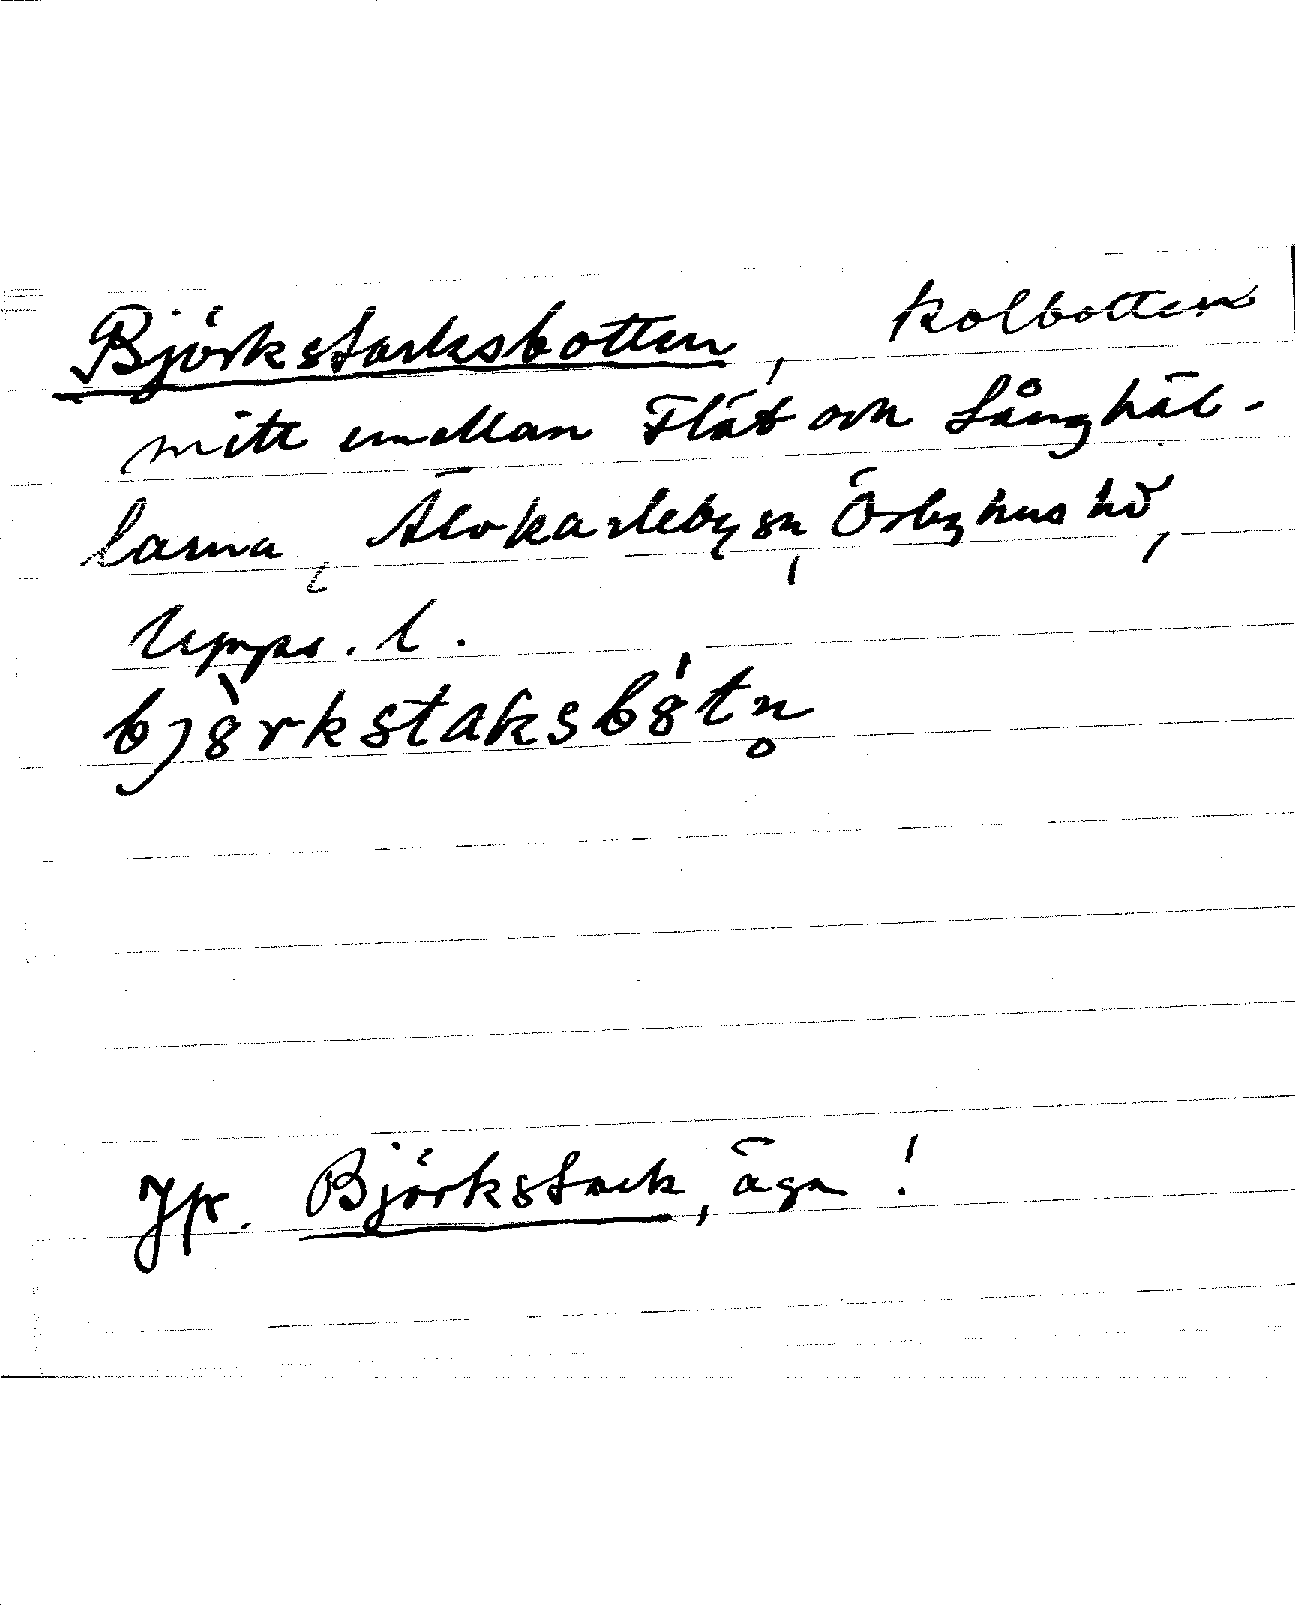 Björkstacksbotten, kolbotten
mitt emellan Flät och Långhäl-
larna, Älvkarleby sn, Örbyhus hd,
Upps. l.
Jfr. Björkstack, äga!